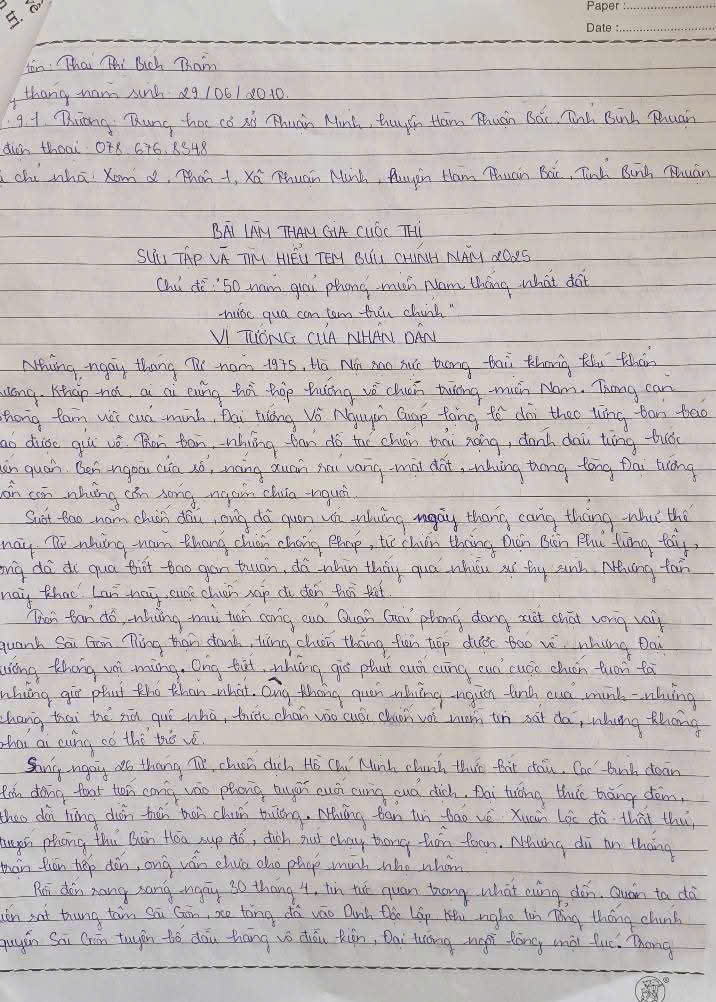 Paper :
Date :
về
trị
tên: Thái Thị Bích Trâm
tháng năm sinh: 29/06/2010.
: 9.1. Trường: Trung học cơ sở Thuận Minh, huyện Hàm Thuận Bắc, Tỉnh Bình Thuận
điện thoại: 078 676 8548
chỉ nhà: Xóm 2, Thôn 1, Xã Thuận Minh, Huyện Hàm Thuận Bắc, Tỉnh Bình Thuận
BÀI LÀM THAM GIA CUỘC THI
SƯU TẬP VÀ TÌM HIỂU TEM BƯU CHÍNH NĂM 2025
Chủ đề: "50 năm giải phóng miền Nam thống nhất đất
nước qua con tem bưu chính"
VỊ TƯỚNG CỦA NHÂN DÂN
Những ngày tháng Tư năm 1975, Hà Nội sao rực trong bầu không khí khẩn
trương. Khắp nơi, ai ai cũng hồi hộp hướng về chiến trường miền Nam. Trong căn
phòng làm việc của mình, Đại tướng Võ Nguyên Giáp lặng lẽ dõi theo từng bản báo
cáo được gửi về. Trên bàn, những bản đồ tác chiến trải rộng, đánh dấu từng bước
tiến quân. Bên ngoài cửa sổ, nắng xuân rải vàng mặt đất, nhưng trong lòng Đại tướng
vẫn còn những cơn sóng ngầm chưa nguôi.
Suốt bao năm chiến đấu, ông đã quen với những ngày tháng căng thẳng như thế
này. Từ những năm kháng chiến chống Pháp, từ chiến thắng Điện Biên Phủ lừng lẫy,
ông đã đi qua biết bao gian truân, đã nhìn thấy quá nhiều sự hy sinh. Nhưng lần
này khác. Lần này, cuộc chiến sắp đi đến hồi kết.
Trên bản đồ, những mũi tiến công của Quân Giải phóng đang xiết chặt vòng vây
quanh Sài Gòn. Từng trận đánh, từng chiến thắng liên tiếp được báo về, nhưng Đại
tướng không vội mừng. Ông biết, những giờ phút cuối cùng của cuộc chiến luôn là
những giờ phút khó khăn nhất. Ông không quên những người lính của mình - những
chàng trai trẻ rời quê nhà, bước chân vào cuộc chiến với niềm tin sắt đá, nhưng không
phải ai cũng có thể trở về.
Sáng ngày 26 tháng Tư, chiến dịch Hồ Chí Minh chính thức bắt đầu. Các binh đoàn
lớn đồng loạt tiến công vào phòng tuyến cuối cùng của địch. Đại tướng thức trắng đêm,
theo dõi từng diễn biến trên chiến trường. Những bản tin báo về: Xuân Lộc đã thất thủ,
tuyến phòng thủ Biên Hòa sụp đổ, địch rút chạy trong hỗn loạn. Nhưng dù tin thắng
trận liên tiếp đến, ông vẫn chưa cho phép mình nhẹ nhõm.
Rồi đến rạng sáng ngày 30 tháng 4, tin tức quan trọng nhất cũng đến. Quân ta đã
tiến sát trung tâm Sài Gòn, xe tăng đã vào Dinh Độc Lập. Khi nghe tin Tổng thống chính
quyền Sài Gòn tuyên bố đầu hàng vô điều kiện, Đại tướng ngồi lặng một lúc. Trong